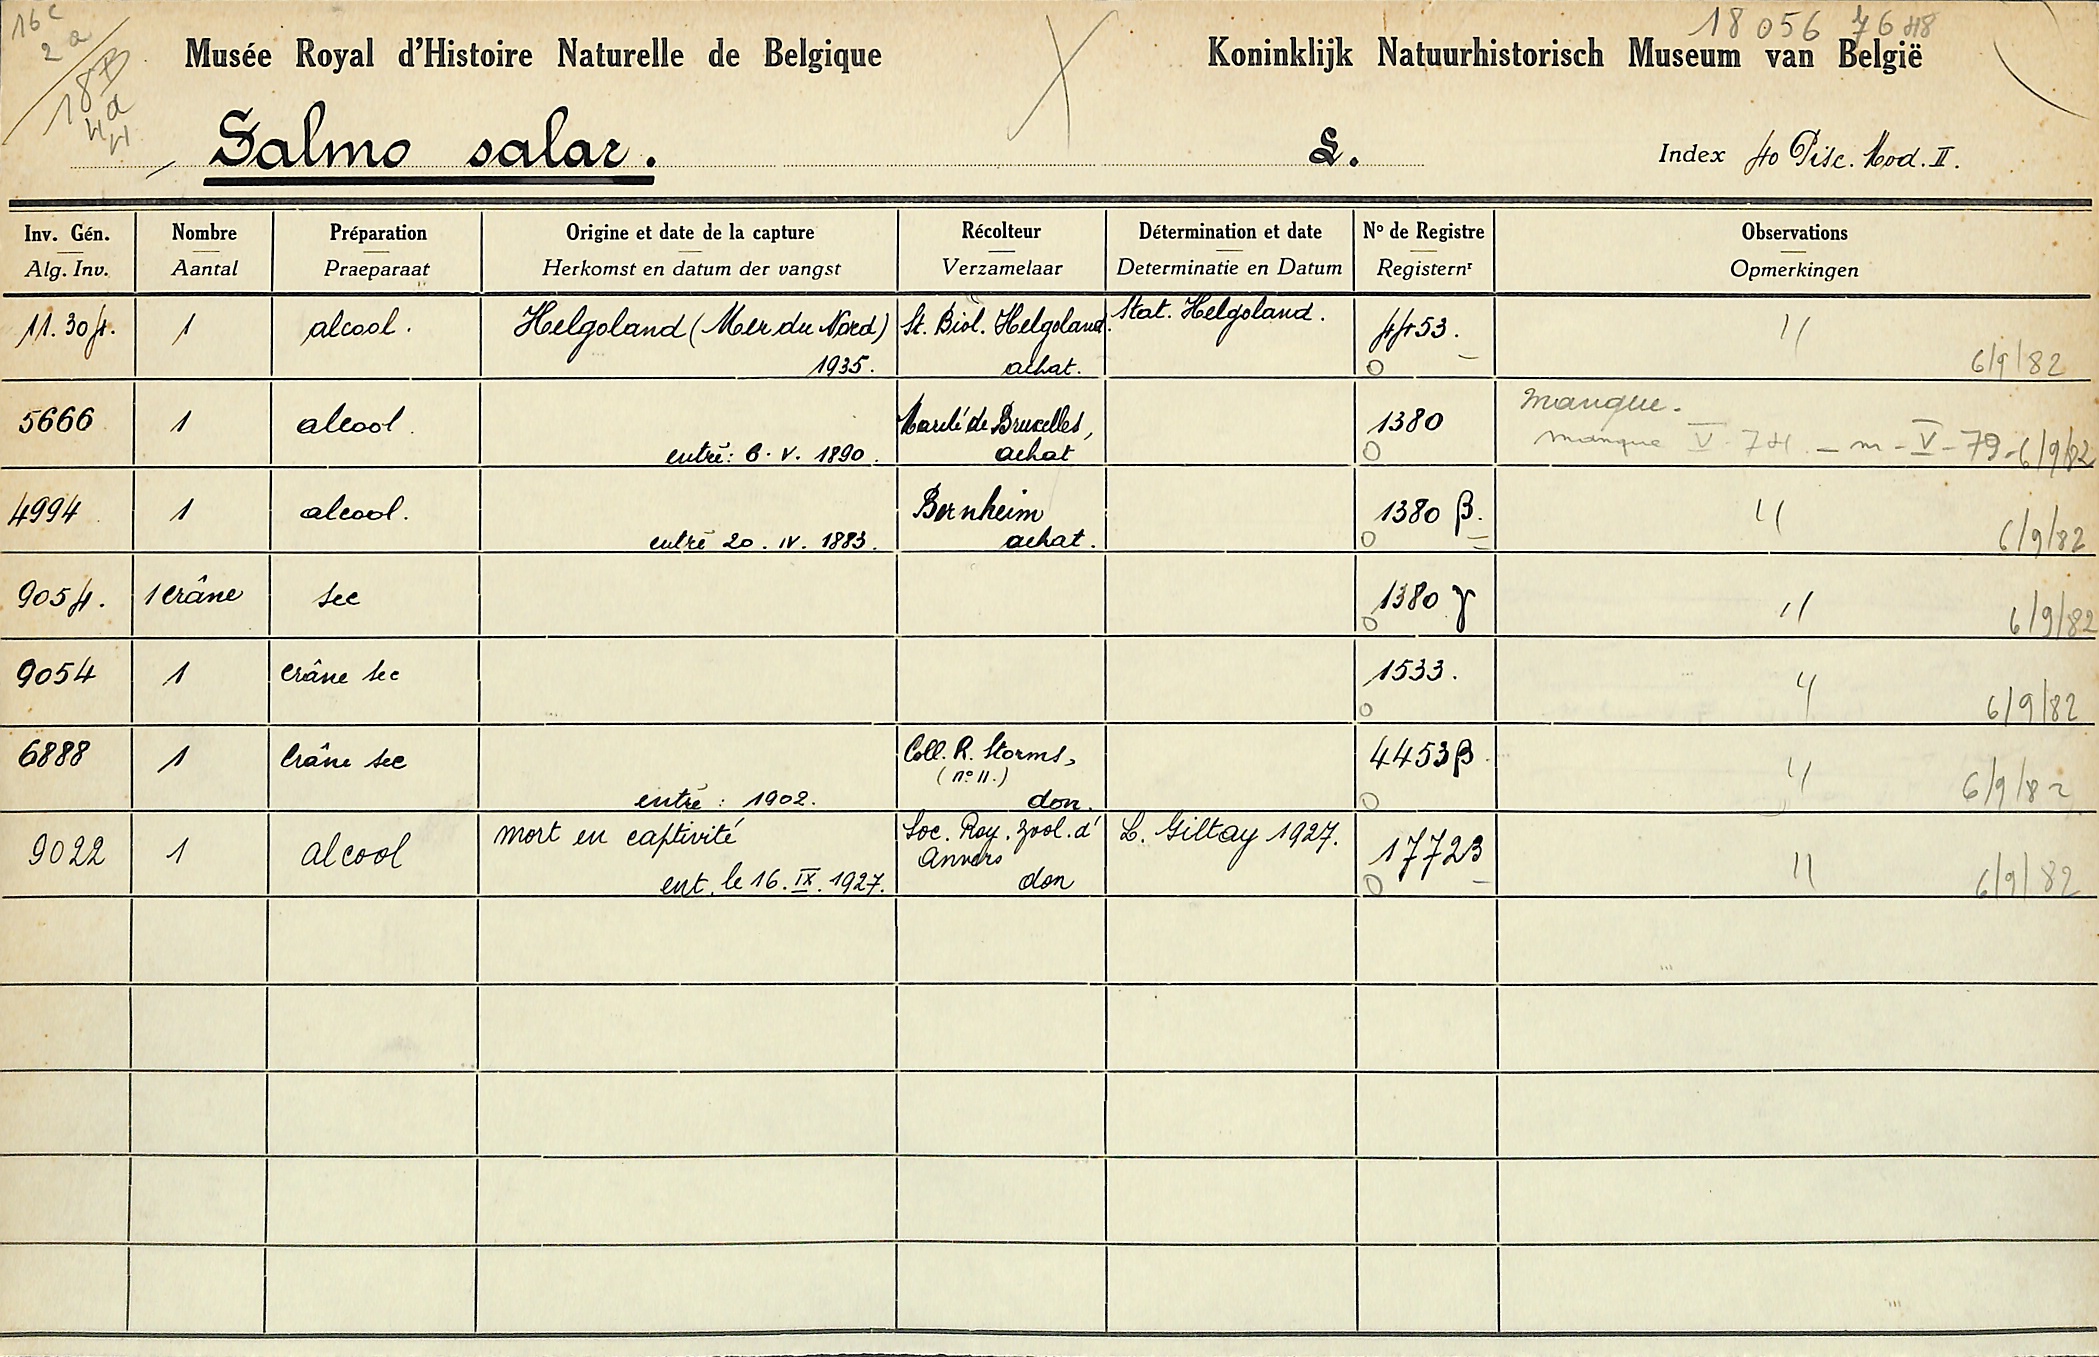 16 c
2 a
18 B
a
18 056 7648
Musée Royal d'Histoire Naturelle de Belgique
Koninklijk Natuurhistorisch Museum van België
Salmo salar.
L.
Index 40 Pisc. Mod. II.
Inv. Gén. Nombre Préparation Origine et date de la capture Récolteur Détermination et date No de Registre Observations
Alg. Inv. Aantal Praeparaat Herkomst en datum der vangst Verzamelaar Determinatie en Datum Registernr Opmerkingen
11.304. 1 alcool. Helgoland (Mer du Nord) St. Biol. Helgoland. Stat. Helgoland. 4453. "
1935. achat. 6/9/82
5666 1 alcool. Marché de Bruxelles, 1380 Manque.
entré: 6. V. 1890. achat manque V-74. - m - V - 79 - 6/9/82
4994 1 alcool. Bernheim 1380 β. "
entré 20. IV. 1883. achat. 6/9/82
9054. 1 crâne sec 1380 γ " 6/9/82
9054 1 crâne sec 1533. " 6/9/82
6888 1 Crâne sec Coll. R. Storms, 4453β. "
(no 11.)
entré : 1902. don. 6/9/82
9022 1 alcool mort en captivité Soc. Roy. zool. d' L. Giltay 1927. 17723 "
Anvers
ent. le 16. IX. 1927. don 6/9/82